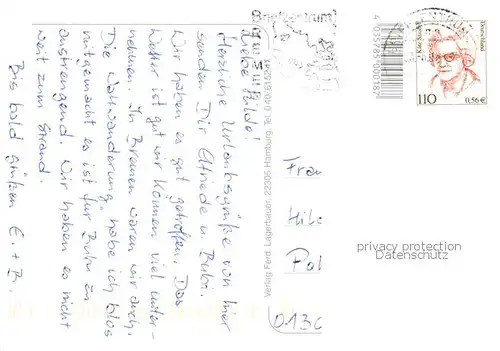 Liebe Hilde!
Herzliche Urlaubsgrüße von hier
senden Dir Elfriede u. Bubi.
Wir haben es gut getroffen. Das
Wetter ist gut wir können viel unter-
nehmen. In Bremen waren wir auch.
Die Wattwanderung habe ich blos
mitgemacht es ist für Bubi zu
anstrengend. Wir haben es nicht
weit zum Strand.
Bis bald grüßen E. + B.
Verlag Ferd. Lagerbauer, 22205 Hamburg, Tel. (040)
Briefzentrum
Deutschland
110
0,56 €
Frau
Hil
Pol
0.13C
privacy protection
Datenschutz